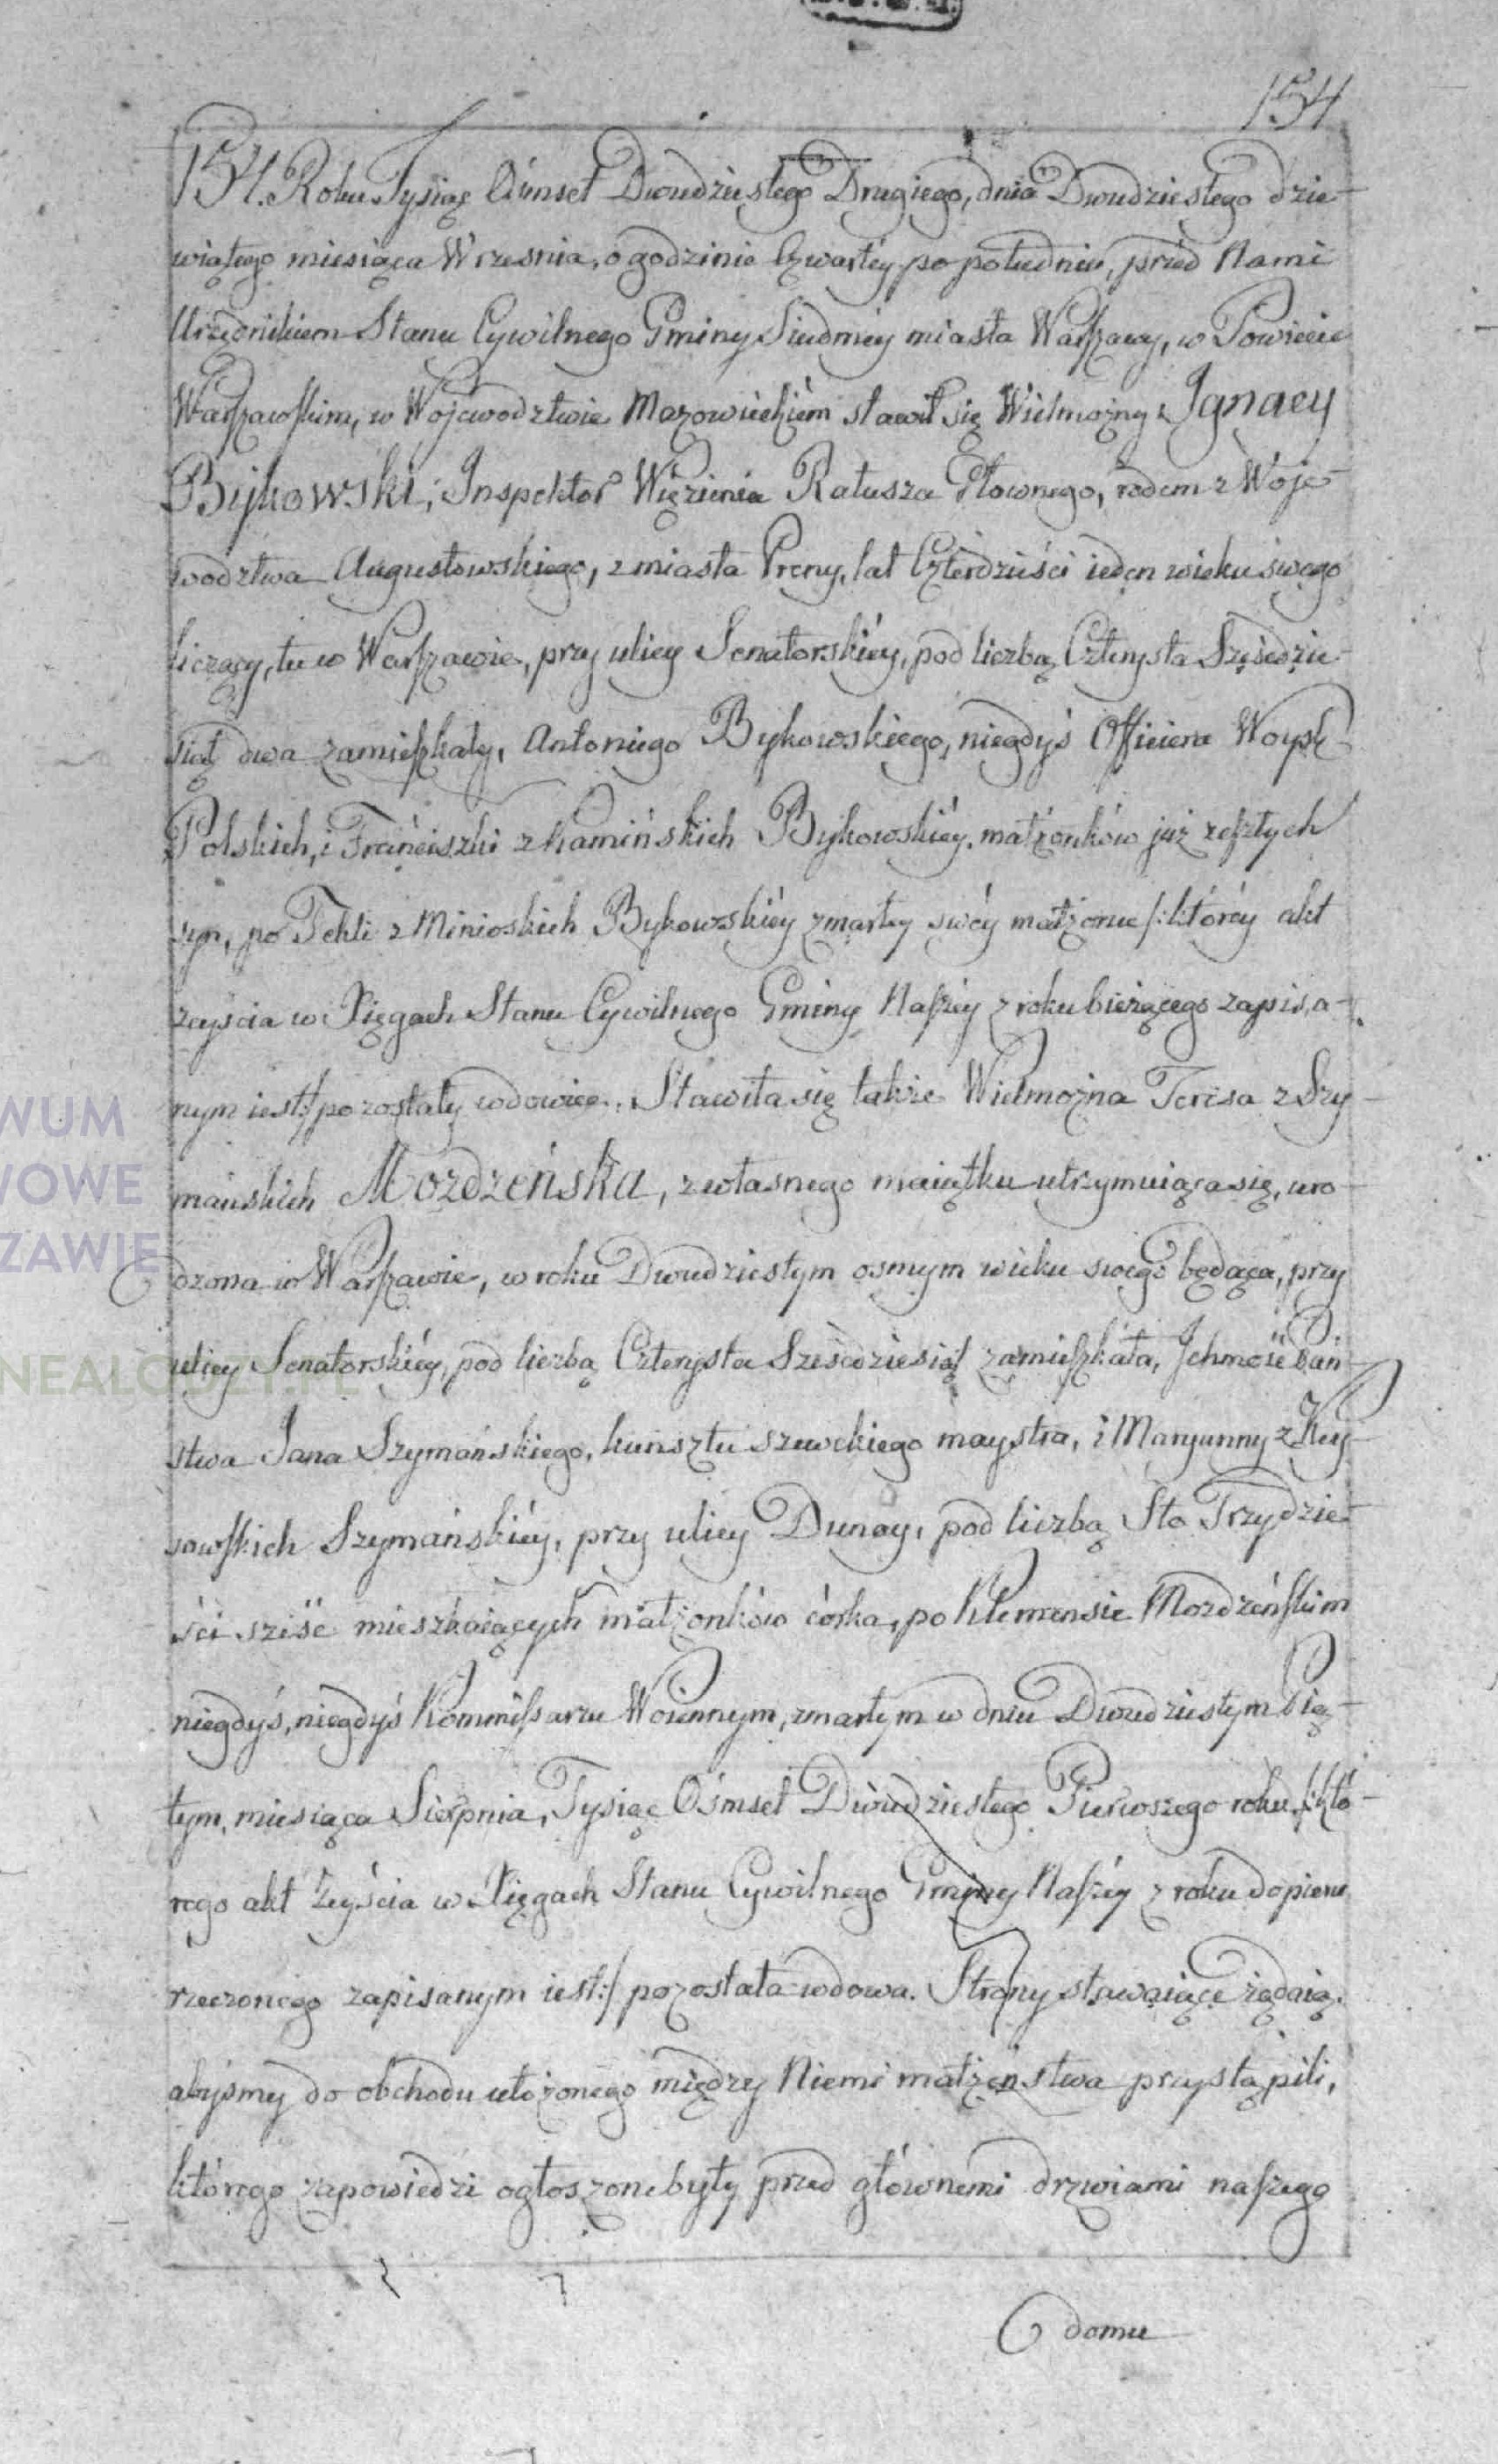 154
154. Roku Tysiąc Ośmset Dwudziestego Drugiego, dnia Dwudziestego dzie-
wiątego miesiąca Wrzesnia, o godzinie Czwartéy po południu, przed Nami
Urzędnikiem Stanu Cywilnego Gminy Siedméy miasta Warszawy, w Powiecie
Warszawskim, w Wojewodztwie Mazowieckiém stawił się Wielmożny Ignacy
Bijkowski, Inspektor Więzienia Ratusza Głównego, rodem z Woje-
wodztwa Augustowskiego, z miasta Preny, lat Czterdzieści ieden wieku swego
liczący, tu w Warszawie, przy ulicy Senatorskiéy, pod liczbą Czterysta Sześćdzie-
siąt dwa zamieszkały, Antoniego Bykowskiego, niegdyś Officiera Woysk
Polskich, i Franciszki z Kamińskich Bykowskiéy małżonków już zeszłych
syn, po Tekli z Minioskich Bykowskiéy zmarłey swéy małżonce /: któréy akt
zeyścia w Xięgach Stanu Cywilnego Gminy Naszéy z roku bieżącego zapisa-
nym iest :/ pozostały wdowiec. Stawiła się także Wielmożna Teresa z Szy-
mańskich Mozdzeńska, z własnego maiątku utrzymuiąca się, uro-
dzona w Warszawie, w roku Dwudziestym osmym wieku swego będąca, przy
ulicy Senatorskiéy, pod liczbą Czterysta Sześćdziesiąt zamieszkała, Ichmość Pań-
stwa Jana Szymańskiego, kunsztu szewckiego maystra, i Maryanny z Key-
sowskich Szymańskiéy, przy ulicy Dunay, pod liczbą Sto Trzydzie-
ści sześć mieszkaiących małżonków córka, po Klemensie Mozdzeńskim
niegdyś, niegdyś Kommissarzu Woiennym, zmarłym w dniu Dwudziestym Pią-
tym, miesiąca Sierpnia, Tysiąc Ośmset Dwudziestego Pierwszego roku /: któ-
rego akt Zeyścia w Xięgach Stanu Cywilnego Gminy Naszéy z roku dopiero
rzeczonego zapisanym iest :/ pozostała wdowa. Strony stawaiące żądaią,
abyśmy do obchodu ułożonego między Niemi małżeństwa przystąpili,
którego zapowiedzi ogłoszone były przed głównemi drzwiami naszego
domu
WUM
WOWE
ZAWIE
NEALODZY.PL